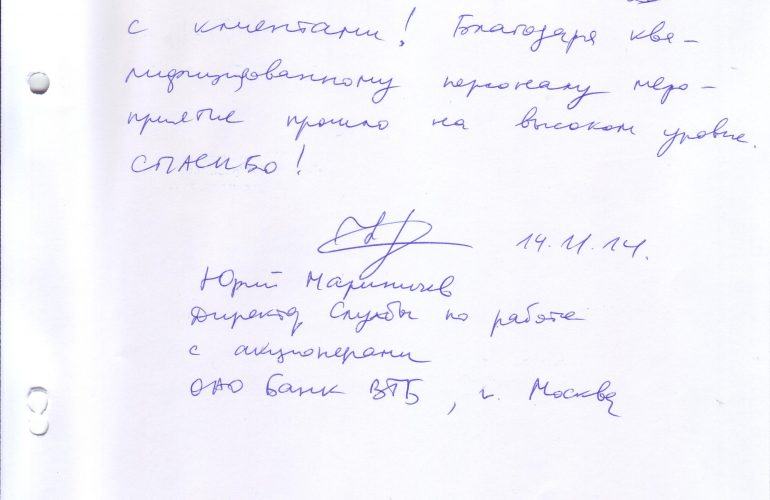 с клиентами! Благодаря ква-
лифицированному персоналу меро-
приятие прошло на высоком уровне.
СПАСИБО!
14.11.14.
Юрий Мариничев
Директор Службы по работе
с акционерами
ОАО Банк ВТБ, г. Москва